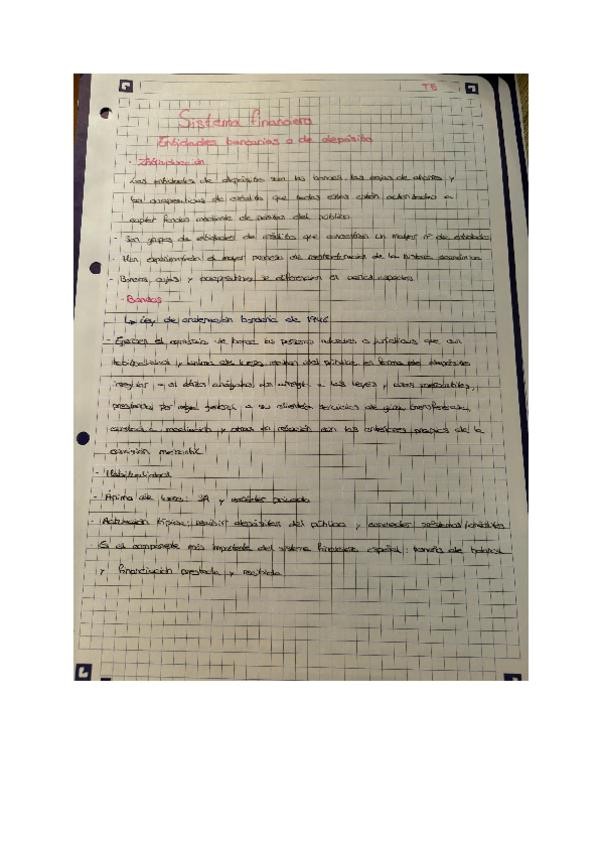 T8
Sistema financiero
Entidades bancarias o de depósito
· Introducción
Las entidades de depósito son los bancos, las cajas de ahorro y
las cooperativas de crédito que todas estas están autorizadas a
captar fondos del público
- Son grupos de entidades de crédito que concentran un mayor nº de entidades
- Han experimentado el mayor proceso de de la historia económica
- Bancos, cajas y cooperativas se diferencian en varios aspectos
· Bancos
↳ Ley de ordenación bancaria de 1946
- Ejercen el comercio de banca las personas naturales o jurídicas que con
habitualidad y ánimo de lucro, reciben del público en forma de depósitos
irregular, o en otras análogas, a las leyes y usos mercantiles,
prestando por regla general a su clientela servicios de giro, transferencia,
custodia, mediación y otros en relación con los anteriores propios de la
comisión mercantil
- Habitualidad
- Ánimo de lucro: SA y carácter privado
- Actuación típica: recibir depósitos del público y conceder préstamos/créditos
Es el componente más importante del sistema financiero español: tamaño de balance
y financiación prestada y recibida